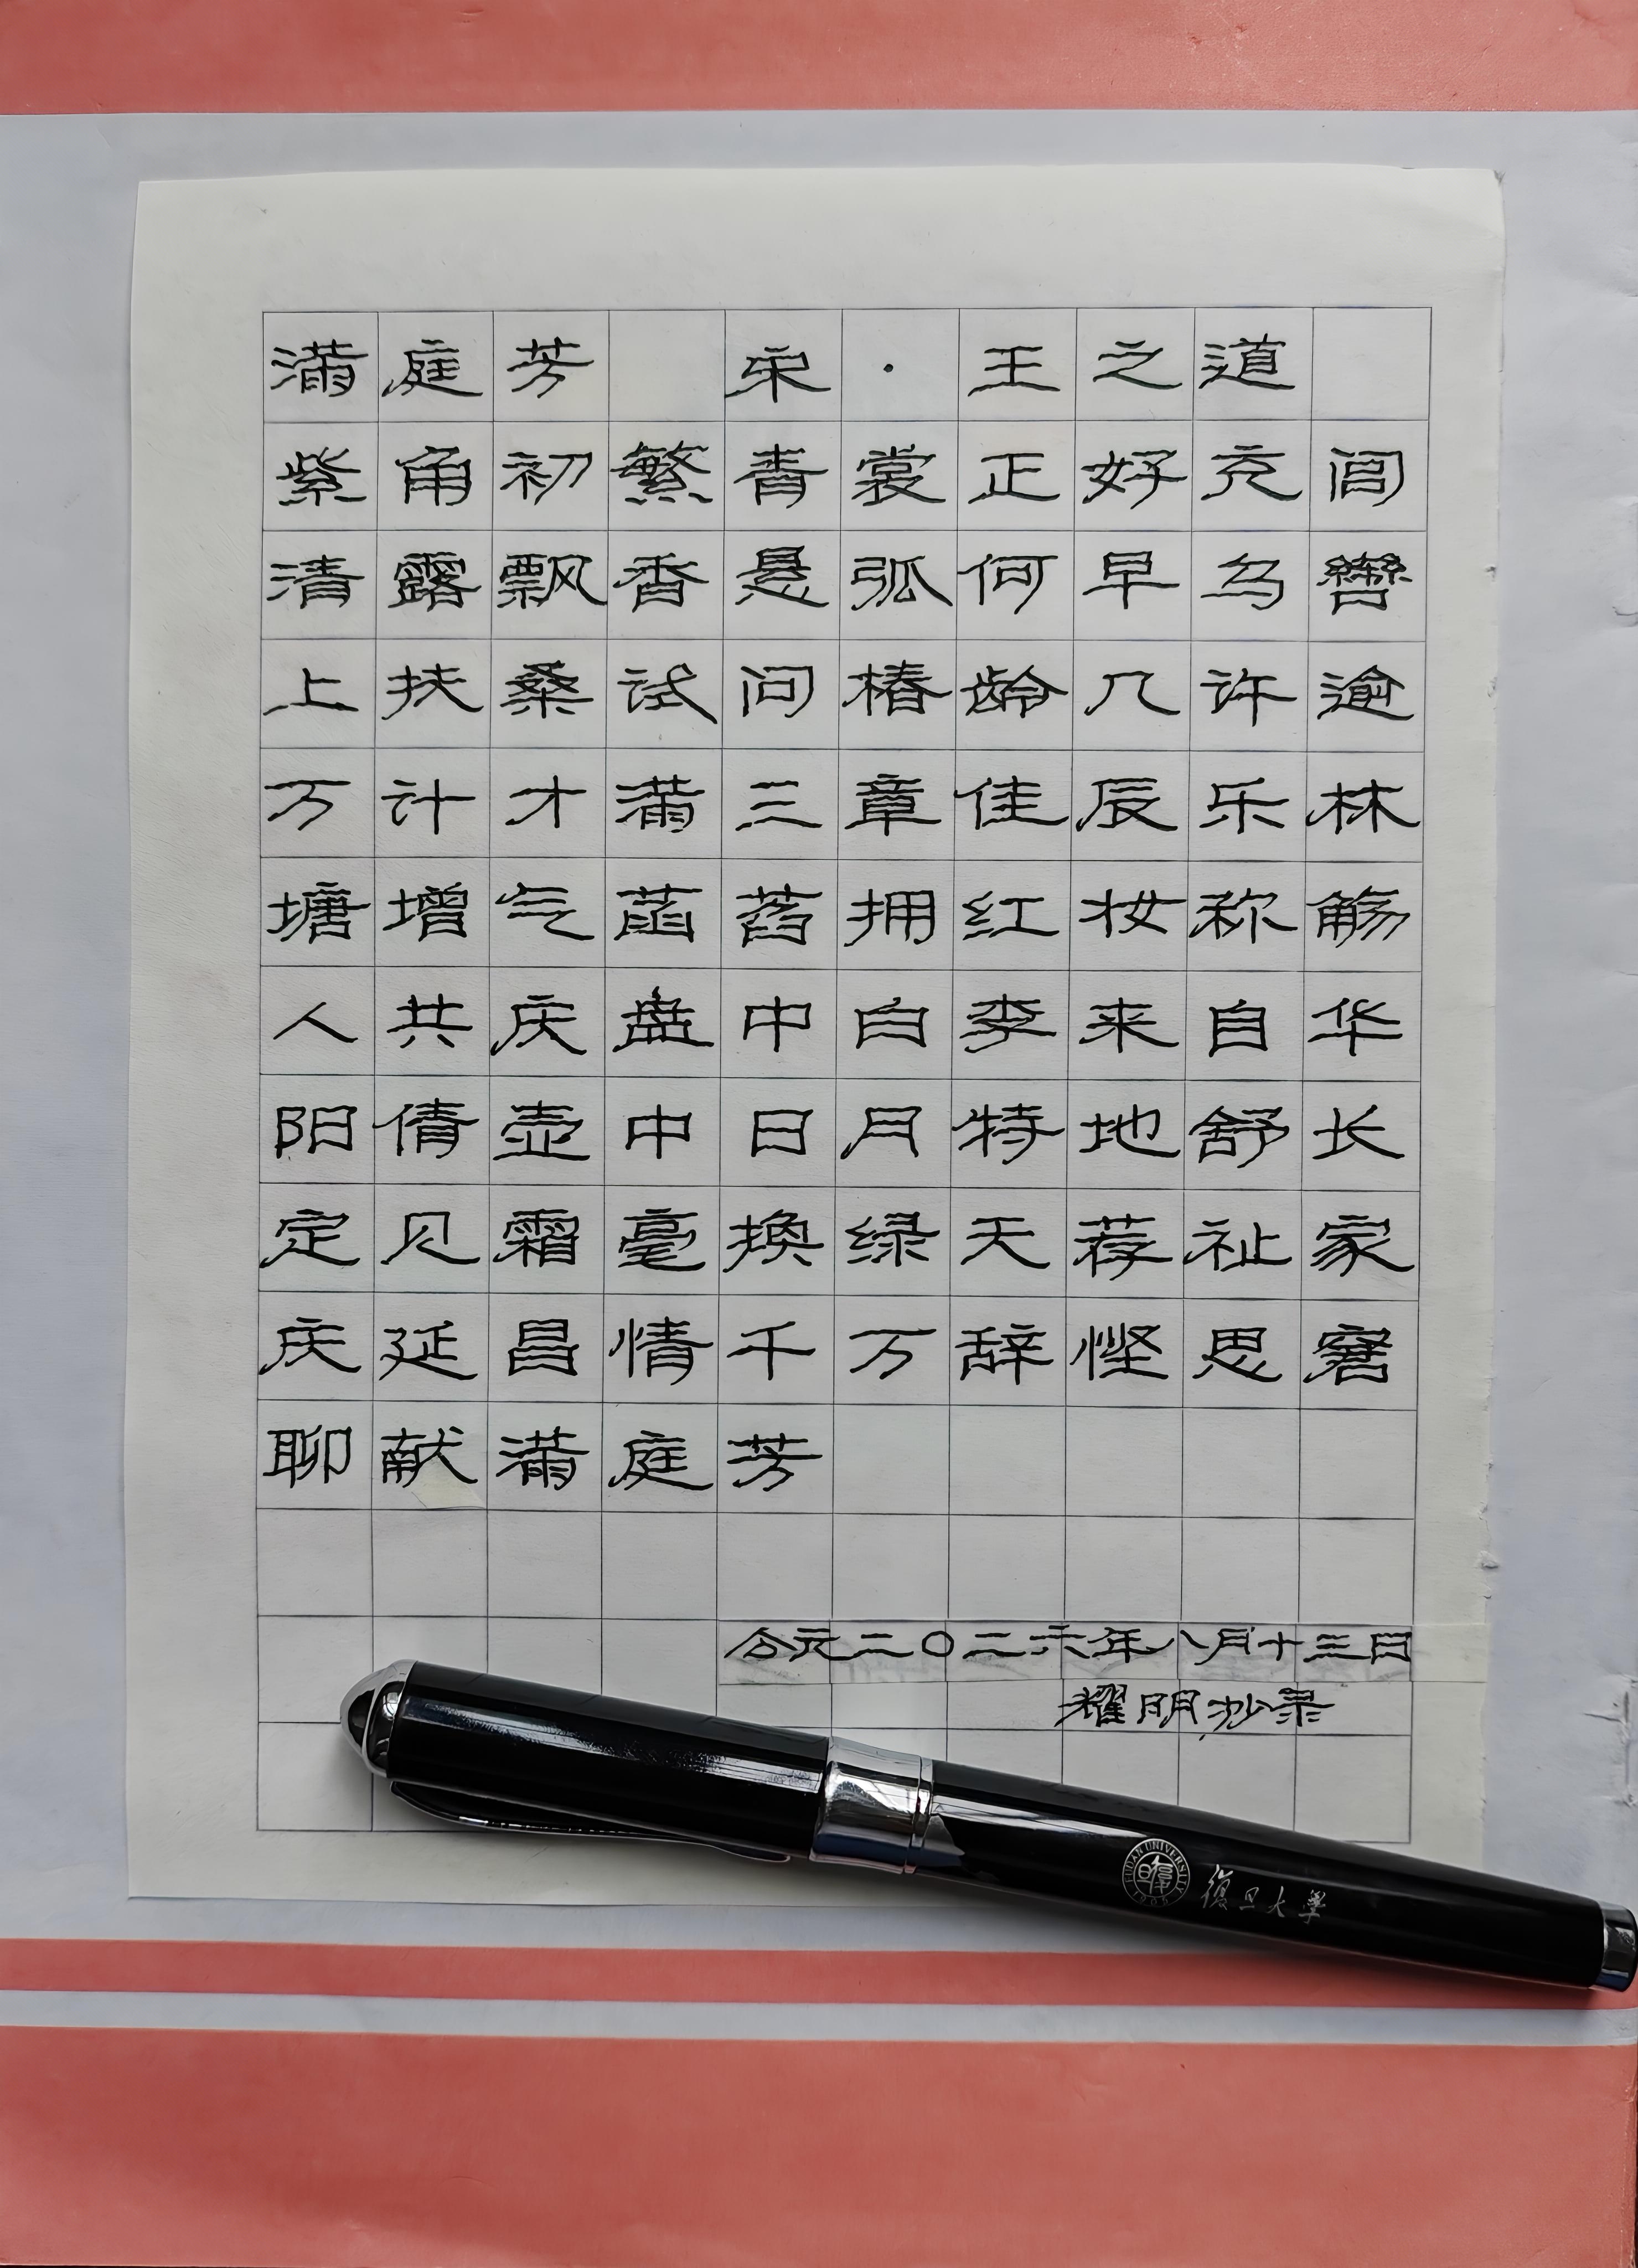 满庭芳 宋·王之道
紫角初繁青裳正好充闾
清露飘香悬弧何早乌辔
上扶桑试问椿龄几许逾
万计才满三章佳辰乐林
塘增气菡萏拥红妆称觞
人共庆盘中白李来自华
阳倩壶中日月特地舒长
定见霜毫换绿天荐祉家
庆延昌情千万辞悭思窘
聊献满庭芳
公元二〇二六年八月十三日
耀明抄录
FUDAN UNIVERSITY
復旦大學